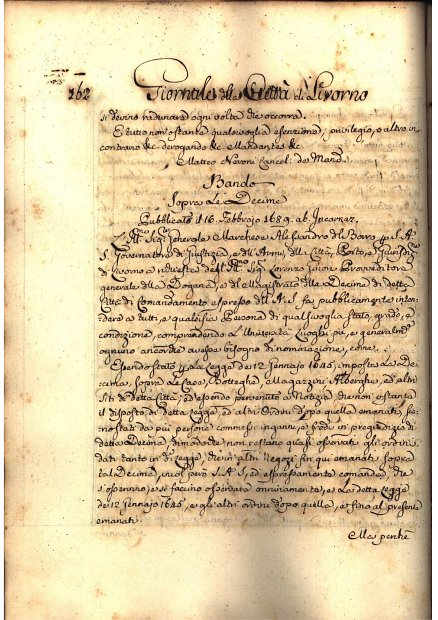 162 Giornale della Città di Livorno
si devino radunare ogni volta che occorra.
E tutto non ostante qualsivoglia esenzione, privilegio, o altro in
contrario &c derogando &c Mandantes &c
Matteo Neroni Cancel. de Mand.
Bando
Sopra Le Decime
Pubblicato il 16. Febbrajo 1689. ab Incarnaz.
L'Ill. Sig. Generale Marchese Alessandro del Borro p S. A.
S. Governatore di Giustizia, e dell'Armi, della Città, Porto, e Giurisdiz.
di Livorno a richiesta dell'Ill. Sig. Lorenzo Provveditore
generale della Dogana, e del Magistrato delle Decime di detta
Città di Comandamento espresso dell'A. S. fa pubblicamente inten-
dere a tutti, e qualsisia Persona di qualsivoglia stato, grado, e
condizione, comprendendo L'Università Luoghi pii, e generalm.
ognuno ancorche avesse bisogno di nominazione, come
Essendo stato p La Legge de 12 Gennajo 1645, imposta La De-
cima, sopra Le Case, Botteghe, Magazzini Alberghi, ed altri
Siti di detta Città, ed essendo pervenuto a Notizia, che non ostante
il disposto di detta Legge, ed altri Ordini dopo quella emanati, sie-
no stati da più persone commessi inganni, e frodi in pregiudizio di
detta Decima, dimodochè non restano quasi osservati gli ordini
dati tanto in di Legge, che in altri Negozi fin qui emanati sopra
tal Decima, vuol però S. A. S., ed espressamente comanda, che
s'osservino, e si faccino osservare onninamente, e La detta Legge
de 12 Gennajo 1645, e gli altri ordini dopo quella, e fino al presente
emanati.
Ma perchè